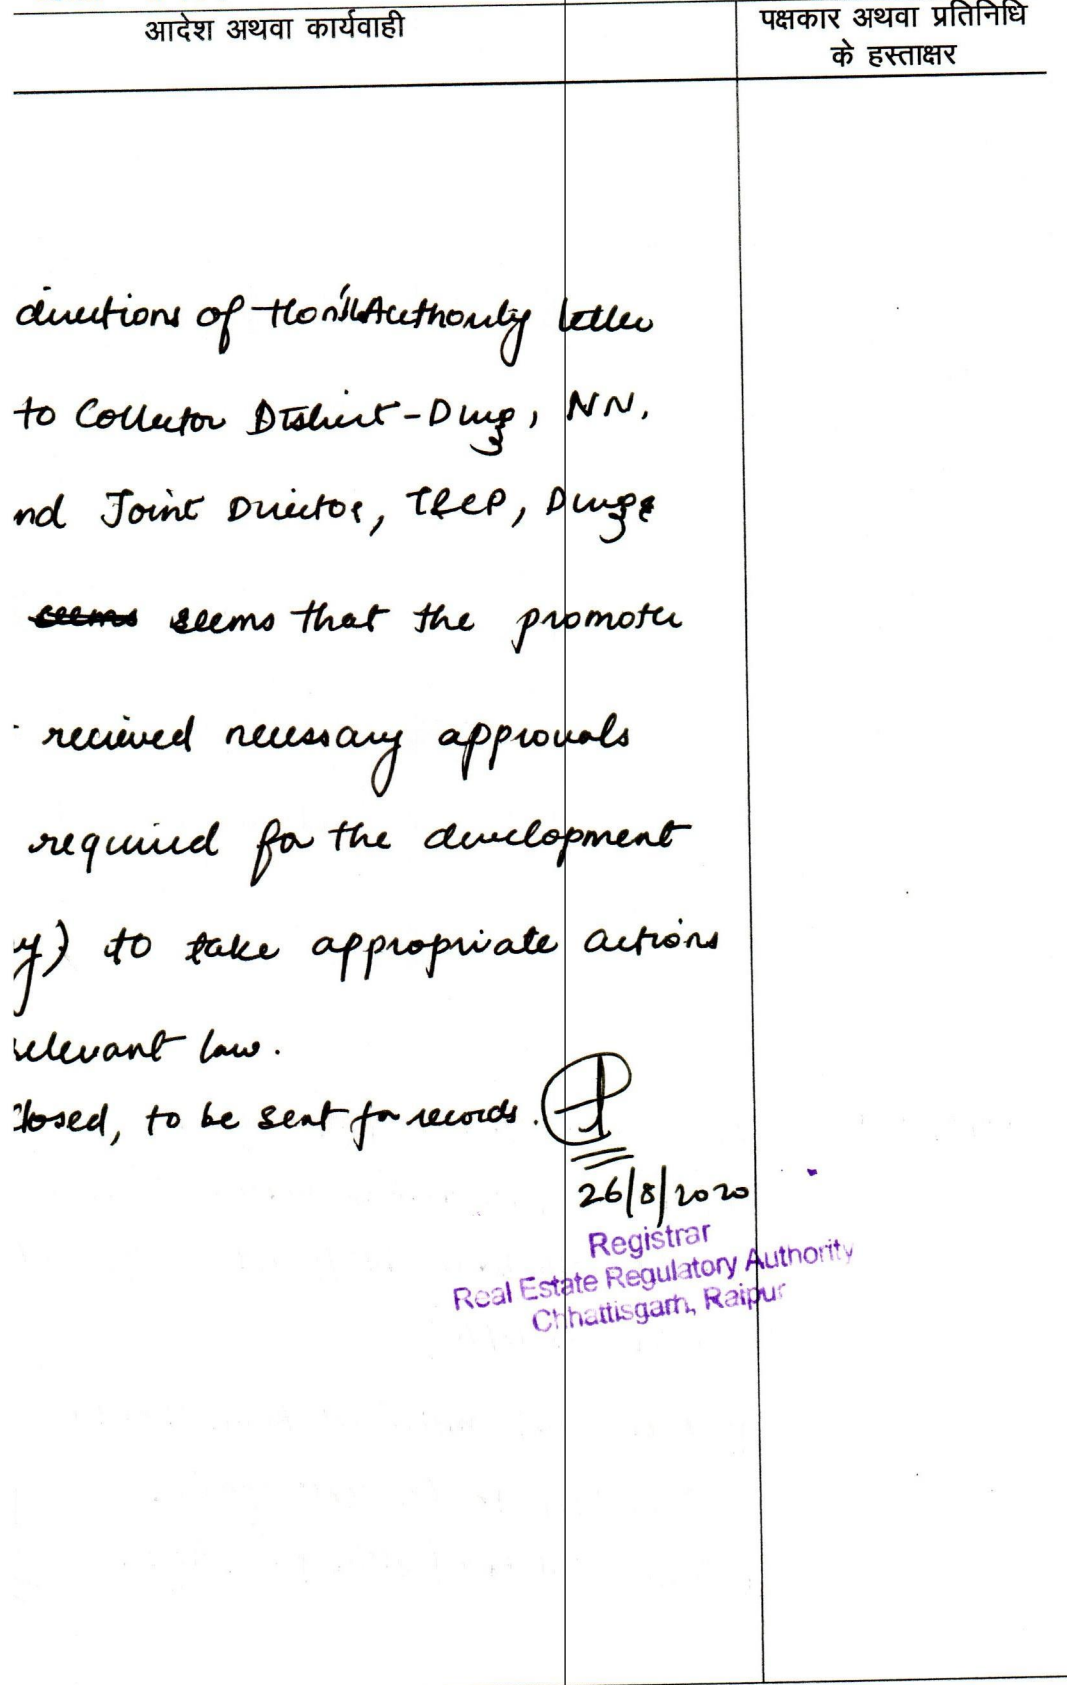 आदेश अथवा कार्यवाही
पक्षकार अथवा प्रतिनिधि
के हस्ताक्षर
directions of Hon'ble Authority letter
to Collector District-Durg, NN.
nd Joint Director, T&CP, Durg
seems seems that the promoter
recieved necessary approvals
required for the development
y) to take appropriate actions
relevant law.
closed, to be sent for records.
26/8/2020
Registrar
Real Estate Regulatory Authority
Chhattisgarh, Raipur